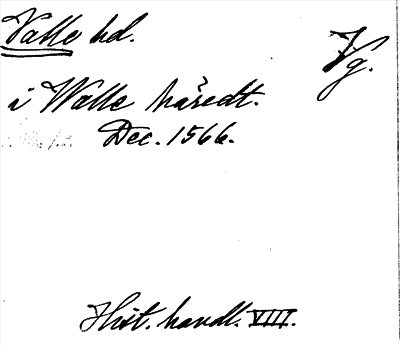 Valle hd.
Vg.
i Walle häredt.
Dec. 1566.
Hist. handl. VIII.